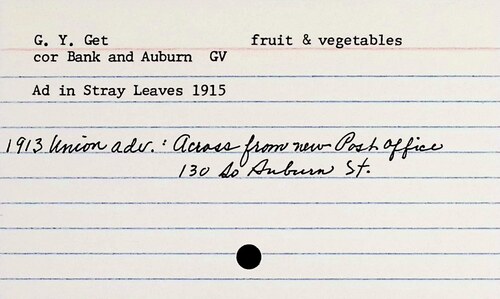 G. Y. Get fruit & vegetables
cor Bank and Auburn GV
Ad in Stray Leaves 1915
1913 Union adv. : Across from new Post office
130 So Auburn St.